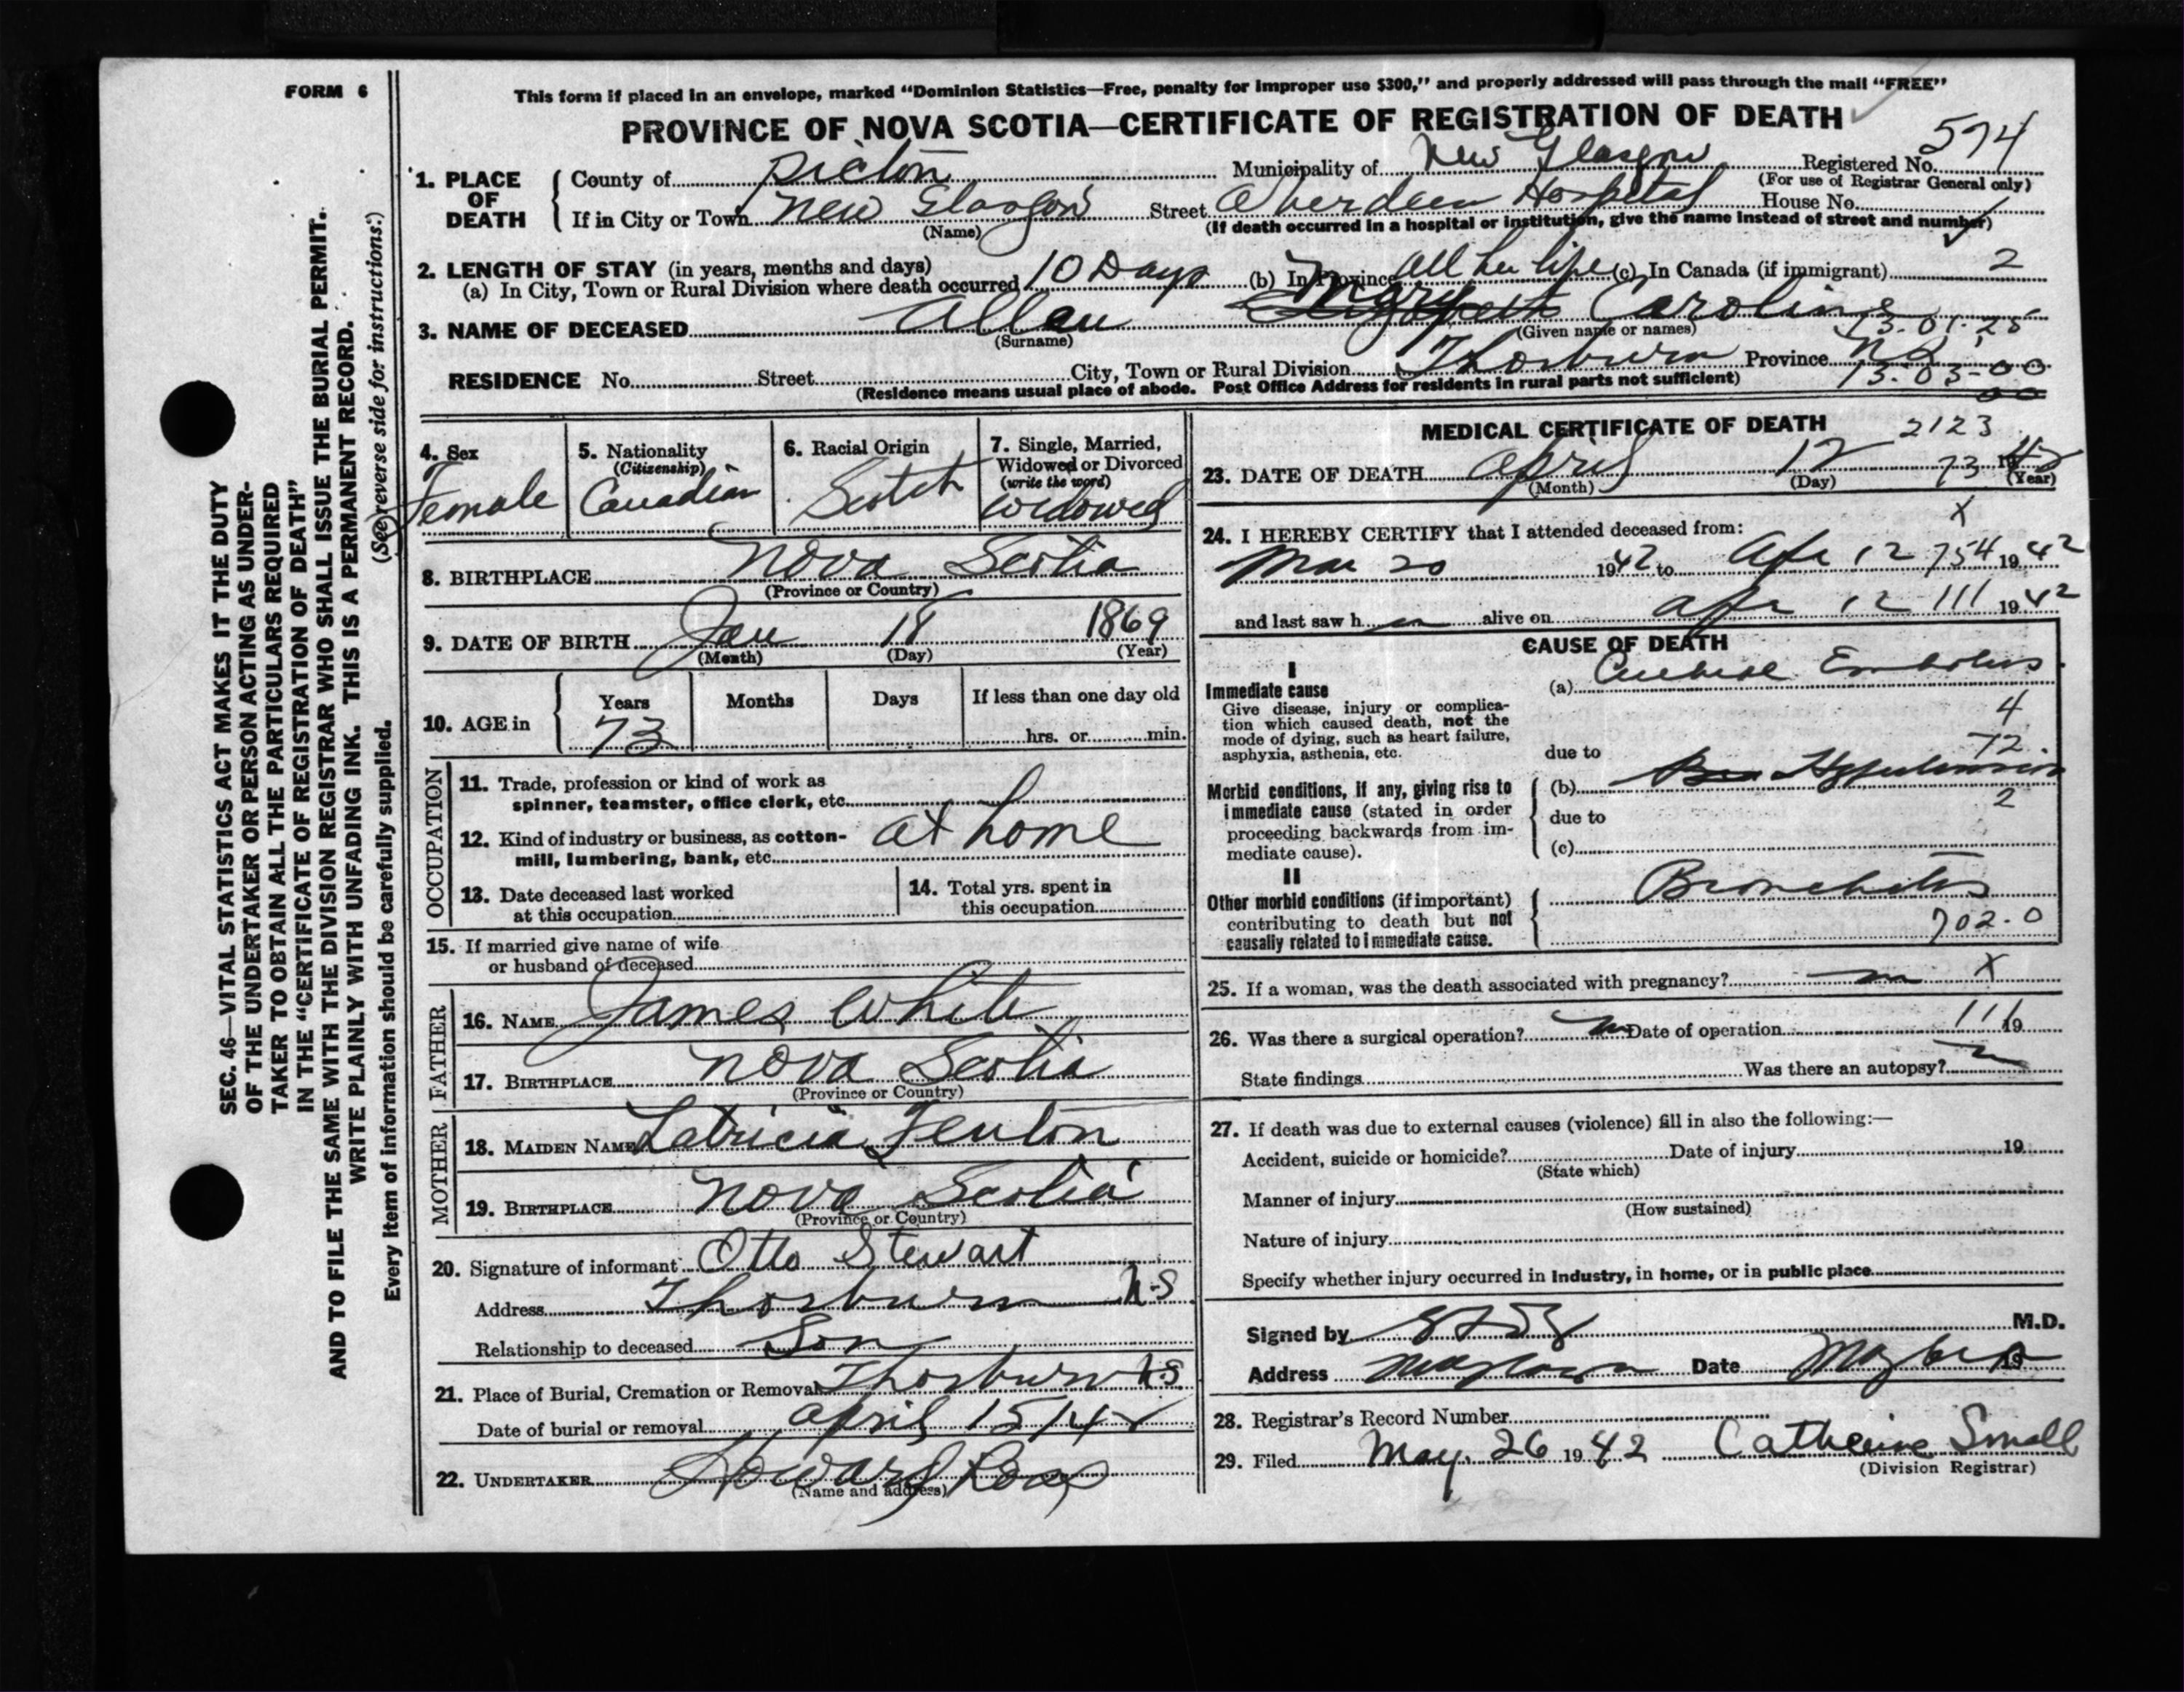 FORM 6
This form if placed in an envelope, marked "Dominion Statistics—Free, penalty for improper use $300," and properly addressed will pass through the mail "FREE"
PROVINCE OF NOVA SCOTIA—CERTIFICATE OF REGISTRATION OF DEATH
574
1. PLACE OF DEATH County of Pictou Municipality of New Glasgow Registered No.
(For use of Registrar General only)
If in City or Town New Glasgow Street Aberdeen Hospital House No.
(Name) (If death occurred in a hospital or institution, give the name instead of street and number)
2. LENGTH OF STAY (in years, months and days)
(a) In City, Town or Rural Division where death occurred 10 Days (b) In Province all her life (c) In Canada (if immigrant) 2
3. NAME OF DECEASED Allan Mary Caroline
(Surname) (Given name or names) 13-01-25
RESIDENCE No. Street City, Town or Rural Division Thorburn Province N S
(Residence means usual place of abode. Post Office Address for residents in rural parts not sufficient) 13-03-00
00
SEC. 46—VITAL STATISTICS ACT MAKES IT THE DUTY
OF THE UNDERTAKER OR PERSON ACTING AS UNDER-
TAKER TO OBTAIN ALL THE PARTICULARS REQUIRED
IN THE "CERTIFICATE OF REGISTRATION OF DEATH"
AND TO FILE THE SAME WITH THE DIVISION REGISTRAR WHO SHALL ISSUE THE BURIAL PERMIT.
WRITE PLAINLY WITH UNFADING INK. THIS IS A PERMANENT RECORD.
(See reverse side for instructions:)
Every item of information should be carefully supplied.
4. Sex
Female
5. Nationality
(Citizenship)
Canadian
6. Racial Origin
Scotch
7. Single, Married,
Widowed or Divorced
(write the word)
Widowed
8. BIRTHPLACE Nova Scotia
(Province or Country)
9. DATE OF BIRTH Jan 18 1869
(Month) (Day) (Year)
10. AGE in Years Months Days If less than one day old
73 hrs. or min.
OCCUPATION
11. Trade, profession or kind of work as
spinner, teamster, office clerk, etc.
12. Kind of industry or business, as cotton-
mill, lumbering, bank, etc. at home
13. Date deceased last worked
at this occupation
14. Total yrs. spent in
this occupation
15. If married give name of wife
or husband of deceased
FATHER
16. NAME James White
17. BIRTHPLACE Nova Scotia
(Province or Country)
MOTHER
18. MAIDEN NAME Latricia Fenton
19. BIRTHPLACE Nova Scotia
(Province or Country)
20. Signature of informant Otto Stewart
Address Thorburn N.S
Relationship to deceased Son
21. Place of Burial, Cremation or Removal Thorburn N.S
Date of burial or removal April 15
22. UNDERTAKER Howard Ross
(Name and address)
MEDICAL CERTIFICATE OF DEATH 2123
23. DATE OF DEATH April 12 73 1942
(Month) (Day) (Year)
X
24. I HEREBY CERTIFY that I attended deceased from:
Mar 20 1942 to Apr 12 754 1942
and last saw h er alive on Apr 12 111 1942
CAUSE OF DEATH
I
Immediate cause
Give disease, injury or complica-
tion which caused death, not the
mode of dying, such as heart failure,
asphyxia, asthenia, etc.
(a) Cerebral Embolus
4
due to
72
Morbid conditions, if any, giving rise to
immediate cause (stated in order
proceeding backwards from im-
mediate cause).
(b) Hypertension
2
due to
(c)
II
Other morbid conditions (if important)
contributing to death but not
causally related to immediate cause.
Bronchitis
702-0
25. If a woman, was the death associated with pregnancy? no X
26. Was there a surgical operation? no Date of operation 111 19
State findings Was there an autopsy? no
27. If death was due to external causes (violence) fill in also the following:—
Accident, suicide or homicide? Date of injury 19
(State which)
Manner of injury
(How sustained)
Nature of injury
Specify whether injury occurred in industry, in home, or in public place
Signed by M.D.
Address Date 19
28. Registrar's Record Number
29. Filed May. 26 1942 Catherine Small
(Division Registrar)